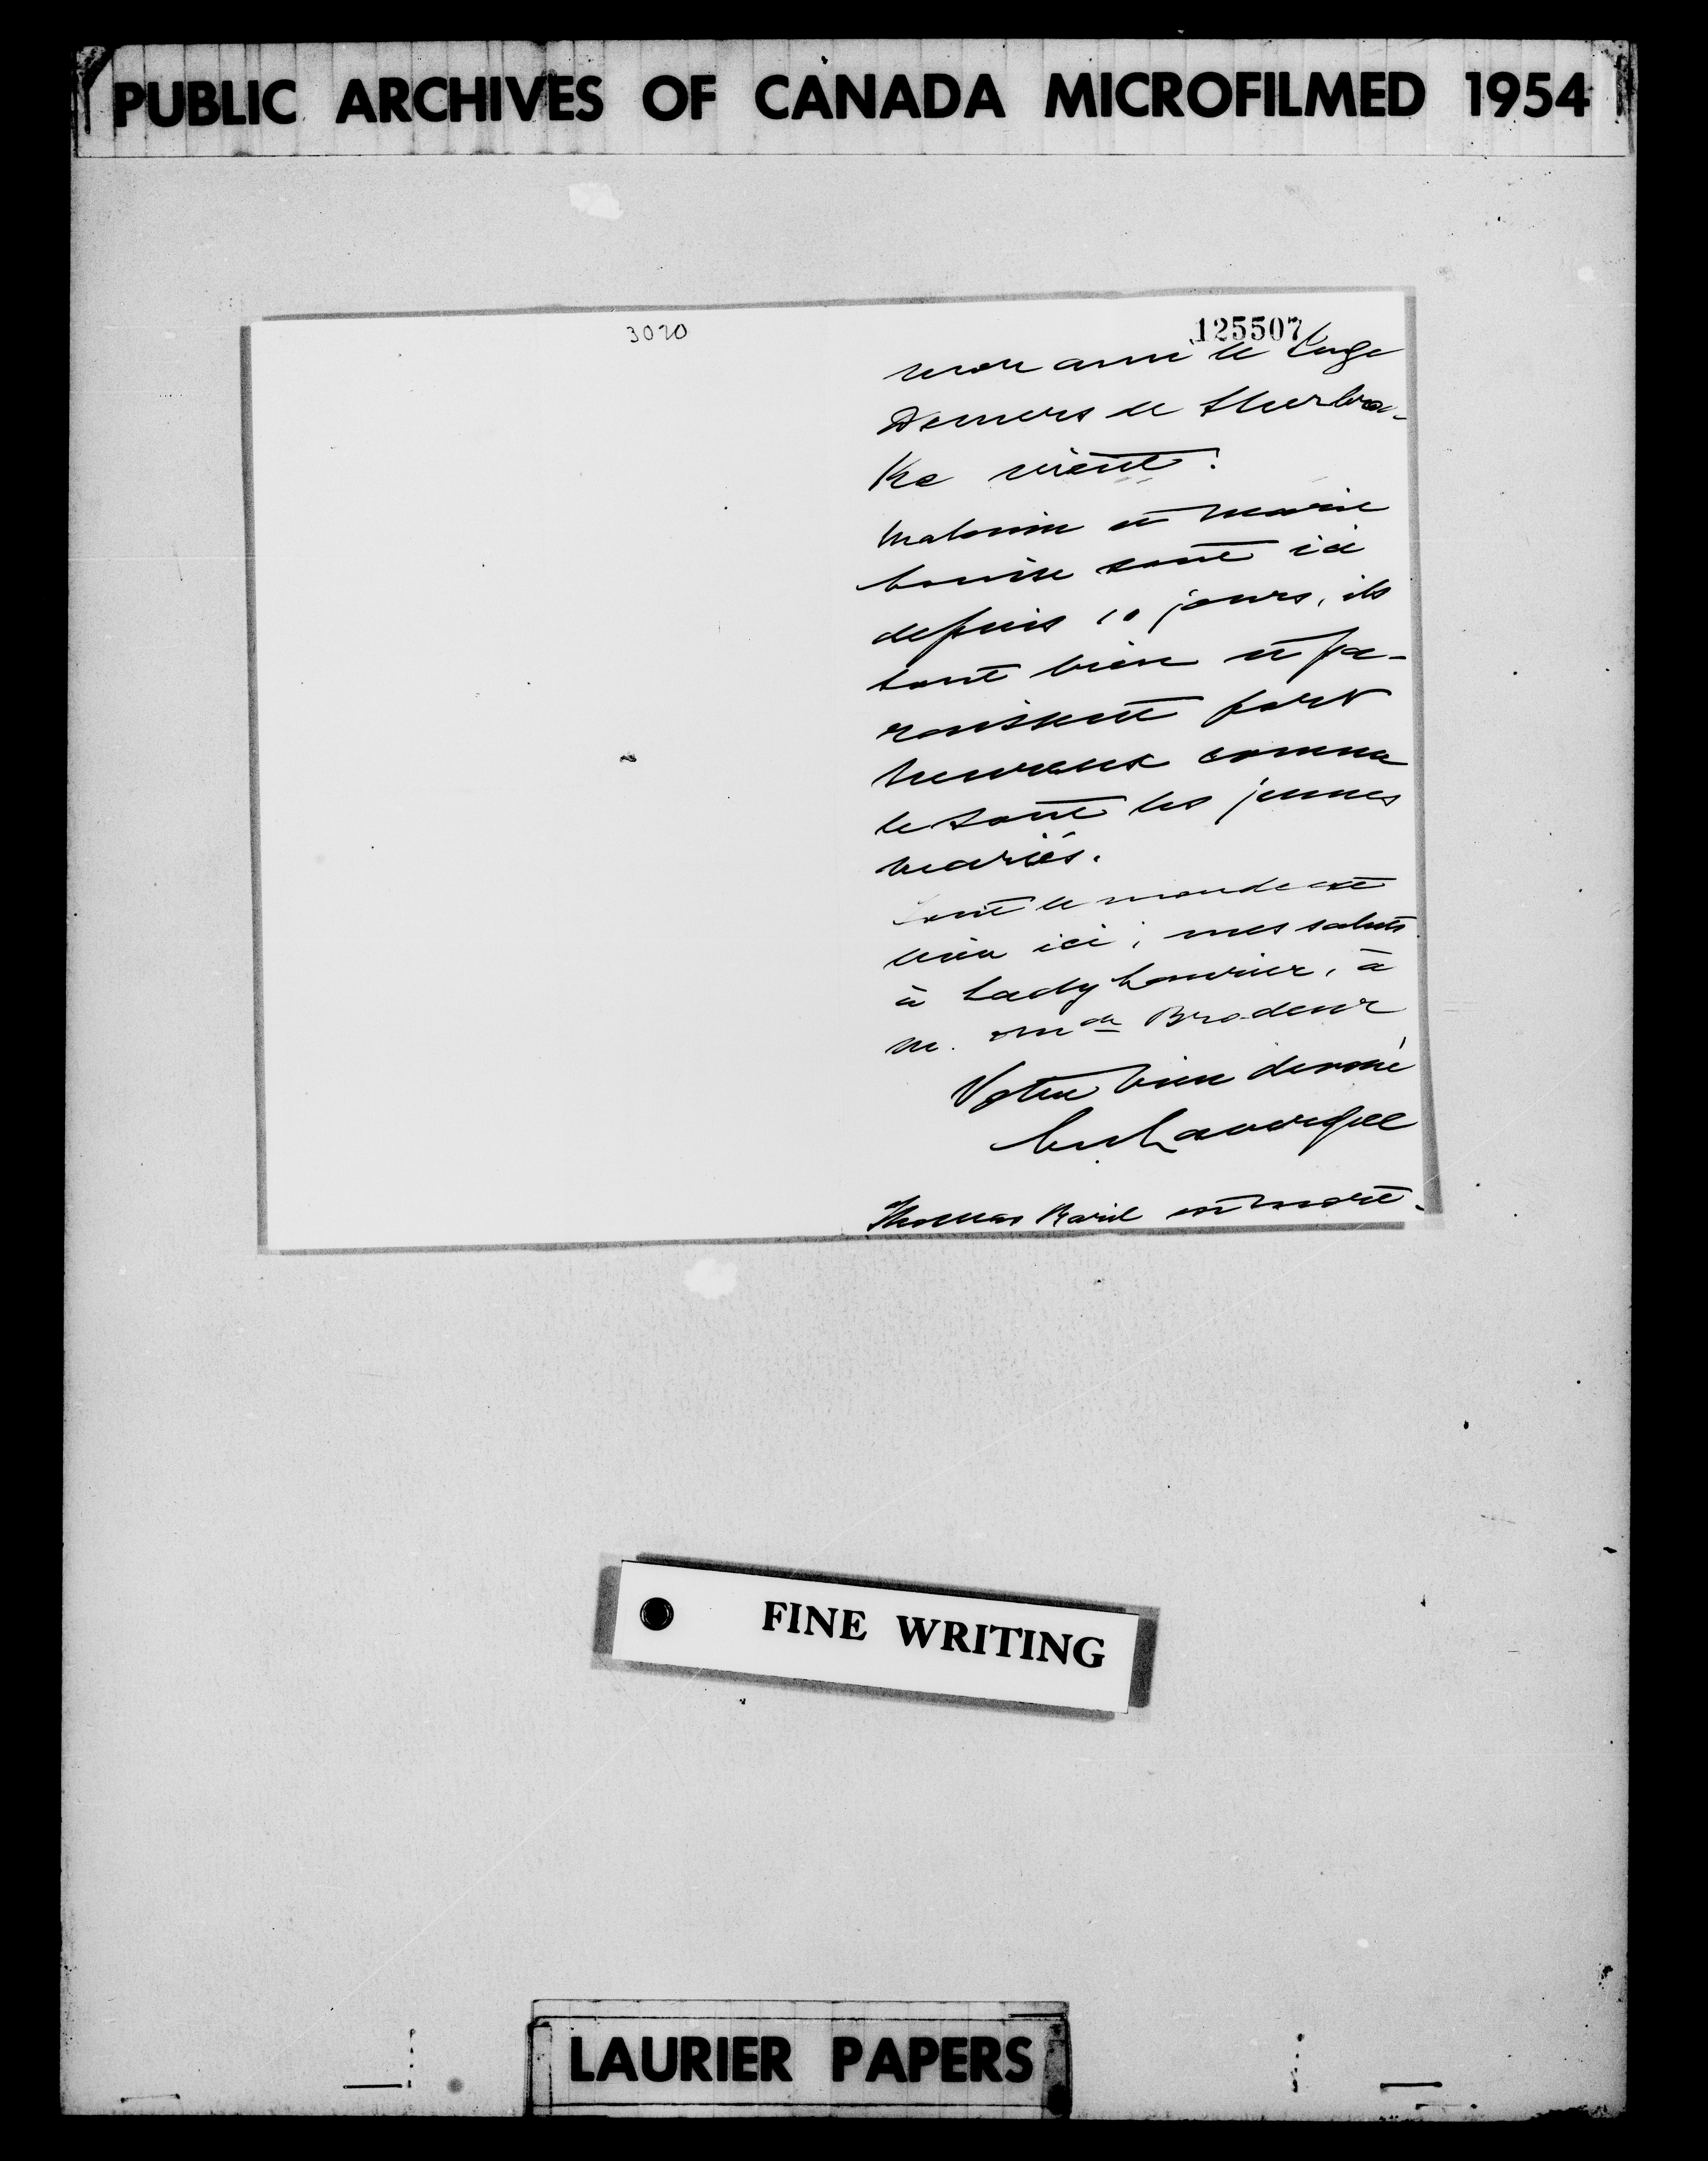 PUBLIC ARCHIVES OF CANADA MICROFILMED 1954
3020
125507
mon ami le Juge
Demers de Sherbroo-
ke vient.
et Marie
Louise sont ici
depuis 10 jours, ils
sont bien et pa-
raissent fort
heureux comme
le sont les jeunes
mariés.
Tout le monde est
bien ici ; mes saluts
à Lady Laurier, à
M. Mde Brodeur
Votre bien dévoué
Lavergne
Thomas Baril est mort.
FINE WRITING
LAURIER PAPERS